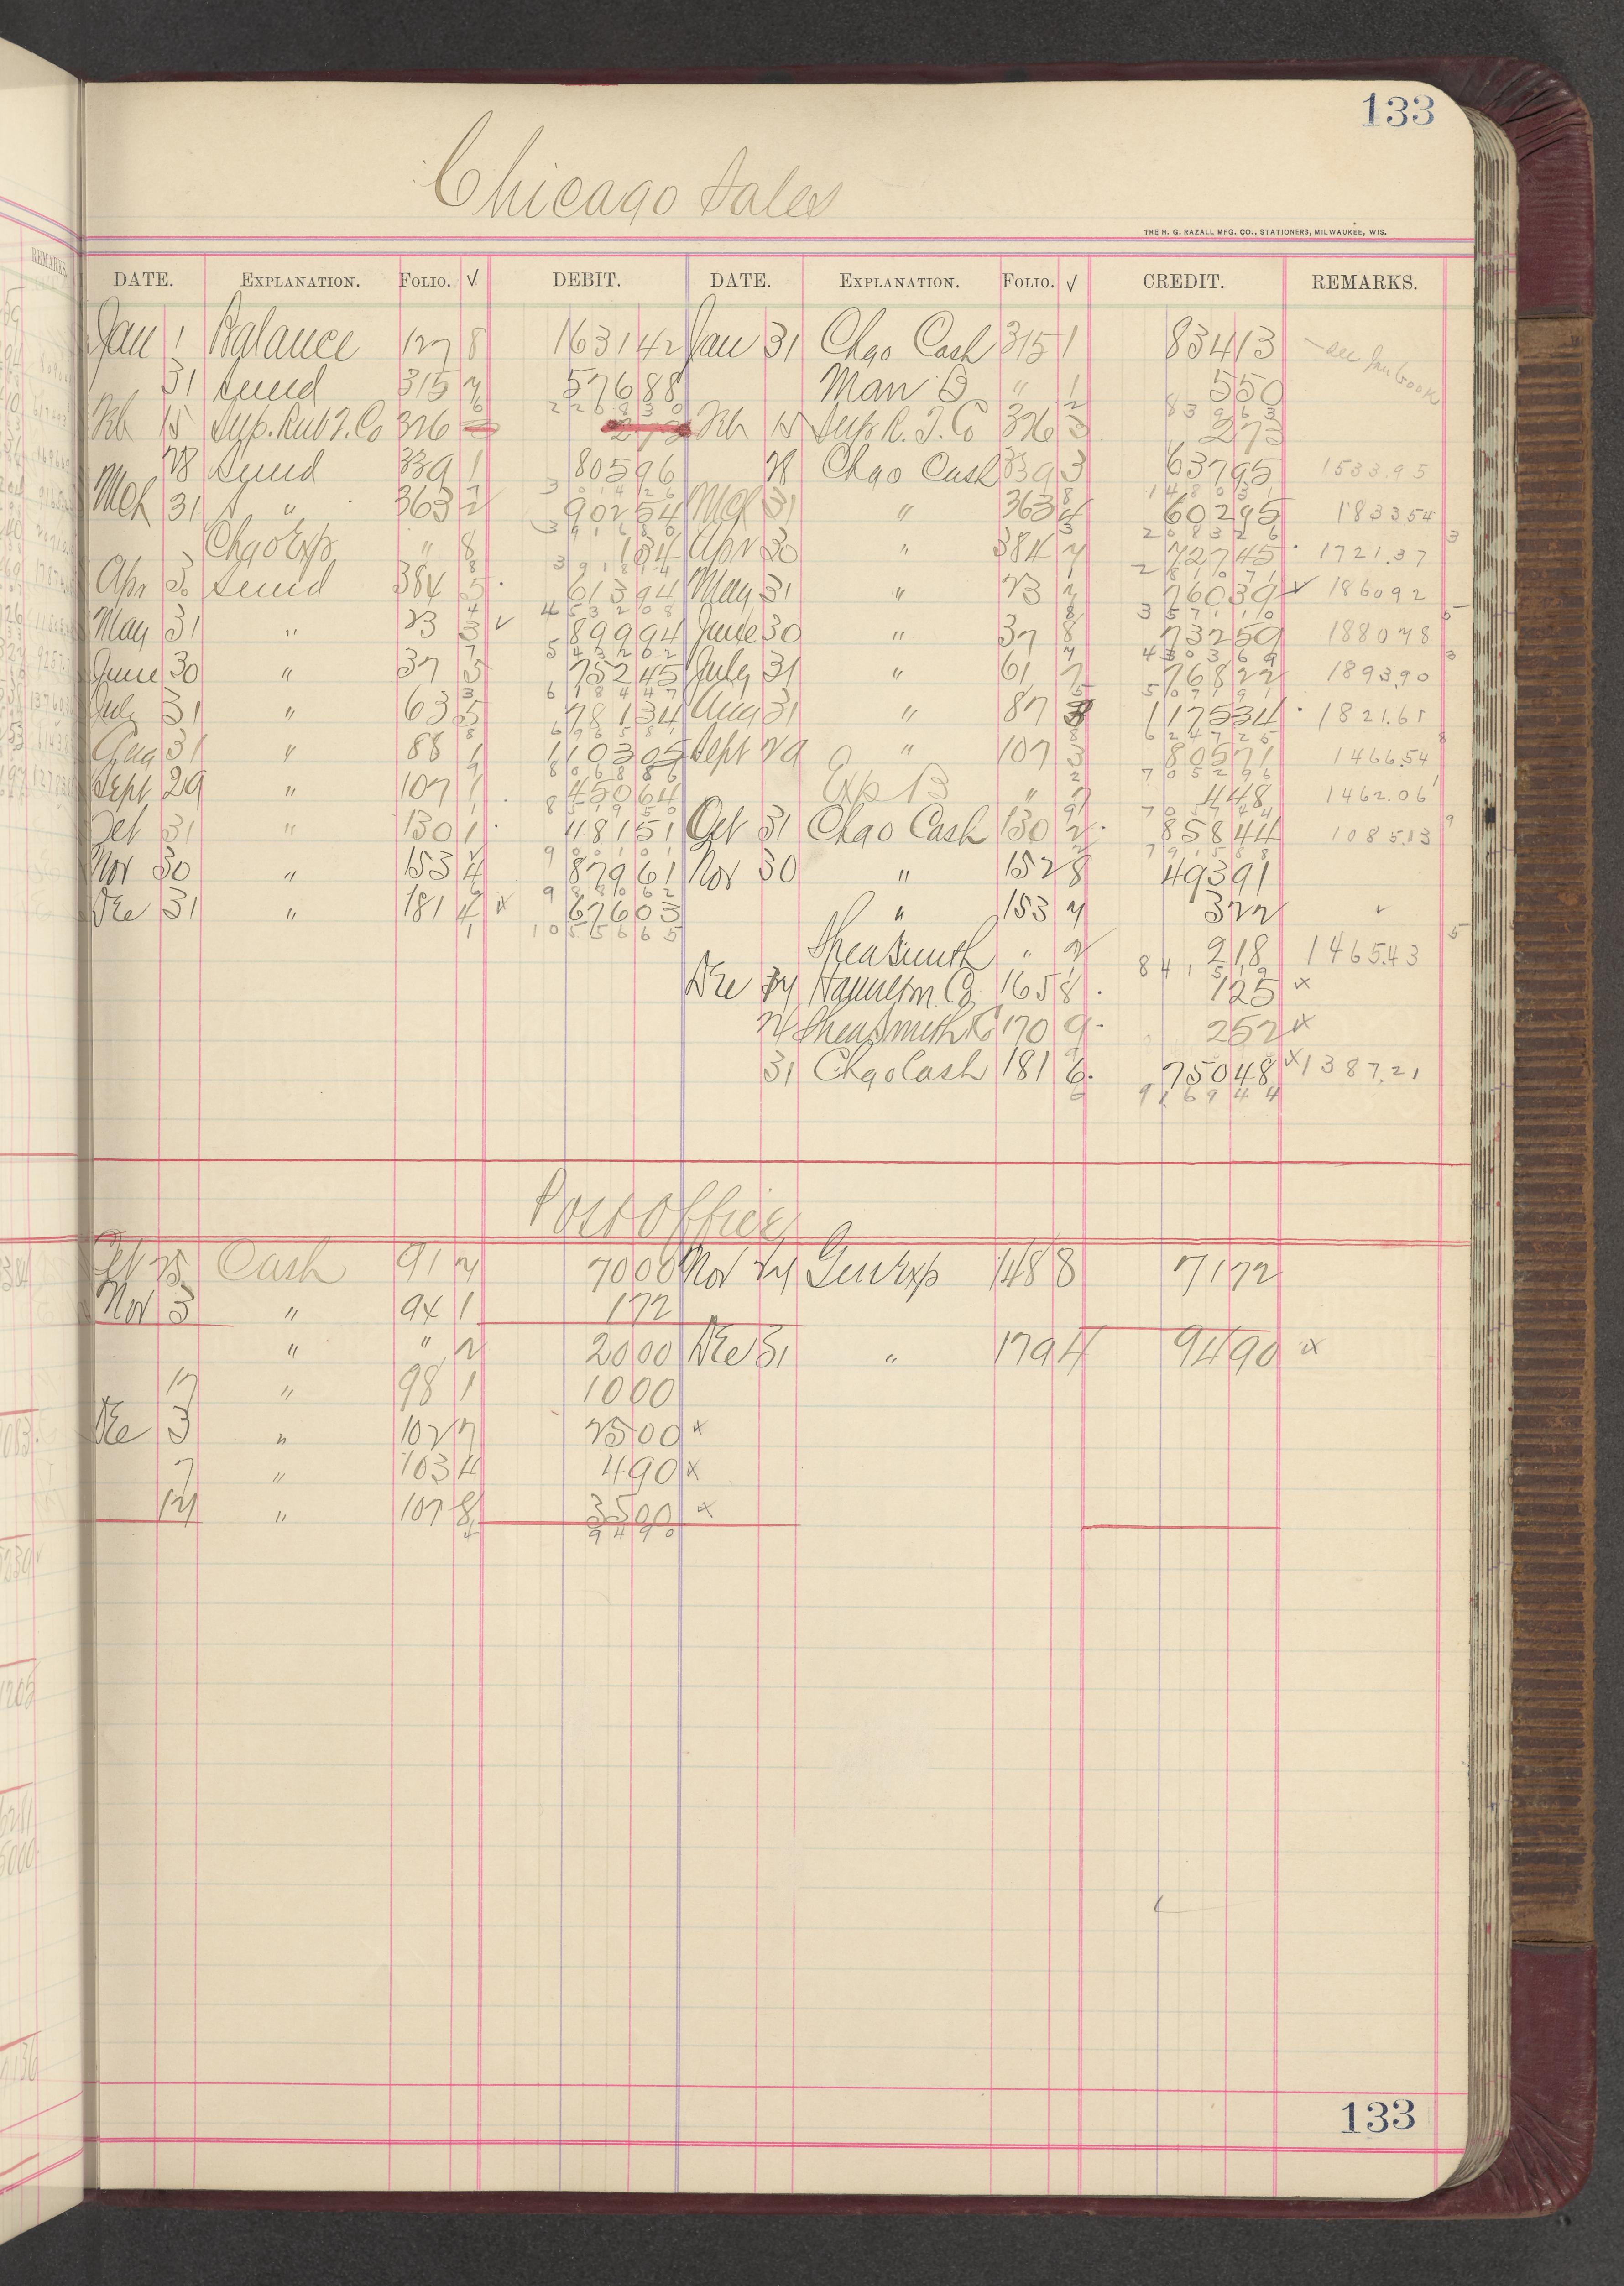 133
Chicago Sales
THE H. G. RAZALL MFG. CO., STATIONERS, MILWAUKEE, WIS.
DATE. EXPLANATION. FOLIO. √ DEBIT. DATE. EXPLANATION. FOLIO. √ CREDIT. REMARKS.
Jan 1 Balance 127 8 1631 42 Jan 31 Chgo Cash 315 1 834 13
31 Sund 315 576 88 " 1 5 50
2208 30 839 63
Feb 15 Sup. Rub T. Co 326 2 73 Feb 15 Sup R. T. Co 326 3 2 73
28 Sund 339 1 805 96 28 Chgo Cash 339 3 637 95 1533.95
3014 26 1480 31
Mch 31 " 363 2 902 54 Mch 31 " 363 4 602 95 1833 54
3916 80 2083 26
Chgo Exp " 8 1 34 Apr 30 " 384 727 45 1721.37
3918 14 2810 71
Apr 30 Sund 384 5 613 94 May 31 " 23 760 39 √ 1860 92
4532 08 3571 10
May 31 " 23 3 √ 899 94 June 30 " 37 8 732 59 1880 98
5432 02 4303 69
June 30 " 37 5 752 45 July 31 " 61 7 768 22 1893.90
6184 47 5071 91
July 31 " 63 5 781 34 Aug 31 " 87 3 1175 34 1821.61
6965 81 6247 25
Aug 31 " 88 1 1103 05 Sept 29 " 107 3 805 71 1466.54
8068 86 7052 96
Sept 29 " 107 1 450 64 Exp B " 4 48 1462.06
8519 50 7057 44
Oct 31 " 130 1 481 51 Oct 31 Chgo Cash 130 2 858 44 1085.13
9001 01 7915 88
Nov 30 " 153 4 879 61 Nov 30 " 152 8 493 91
9880 62
Dec 31 " 181 4 x 676 03 " 153 3 22 √
10556 65
Shea Smith " 2 2 18 1465.43
Dec Hamilton 165 8 1 25 x
Shea Smith Co 170 9 2 52 x
31 Chgo Cash 181 6 750 48 x 1387.21
9169 44
Post Office
Oct 25 Cash 91 7 70 00 Nov Gen Exp 148 8 71 72
Nov 3 " 94 1 1 72
" " 2 20 00 Dec 31 " 179 4 94 90 x
17 " 98 1 10 00
Dec 3 " 102 7 25 00 x
7 " 103 4 4 90 x
" 107 8 35 00 x
94 90
133